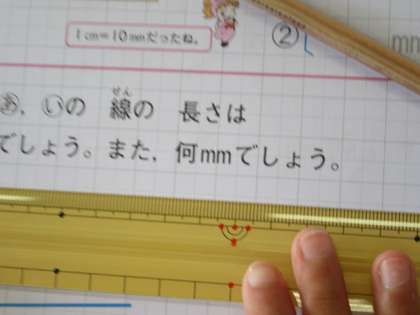 1cm=10mmだったね。
②
mm
あ，いの 線の 長さは
せん
でしょう。また，何mmでしょう。